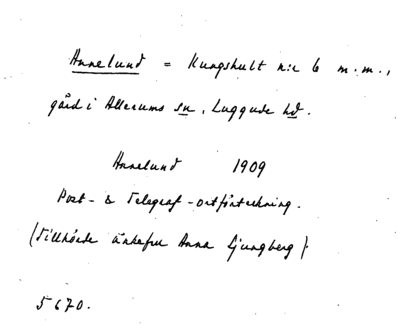 Annelund = Kungshult n:r 6 m.m.,
gård i Allerums sn, Luggude hd.
Annelund 1909
Post- & Telegraf-ortförteckning.
(Tillhörde änkefru Anna Ljungberg)
5670.